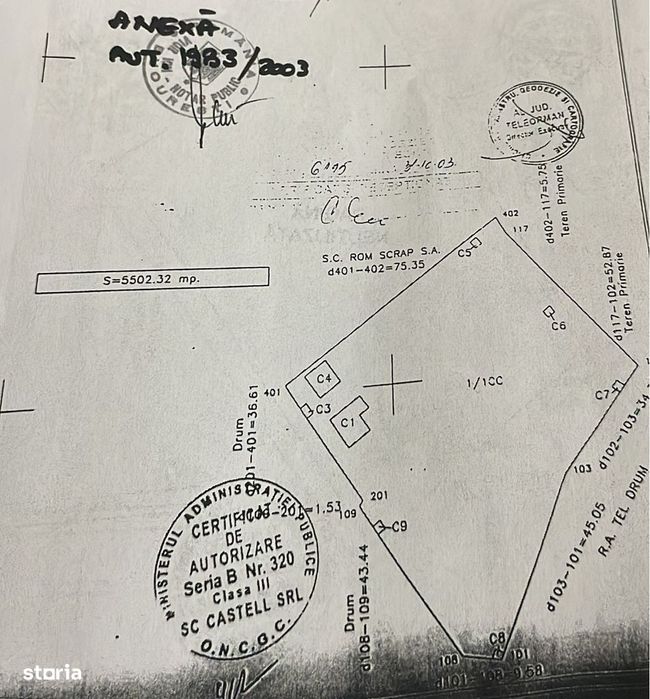 ANEXĂ
AUT. 1933/2003
NOTAR PUBLIC
OF. JUD.
TELEORMAN
Director Executiv
402
117
d402-117=5.75
Teren Primarie
S.C. ROM SCRAP S.A.
d401-402=75.35
C5
S=5502.32 mp.
d117-102=52.87
Teren Primarie
C6
C4
1/1CC
401
C3
C7
C1
Drum
d102-103=34
103
201
109
C9
R.A. TEL DRUM
d103-101=45.05
MINISTERUL ADMINISTRAŢIEI PUBLICE
CERTIFICAT
DE
AUTORIZARE
Seria B Nr. 320
Clasa III
SC CASTELL SRL
O.N.C.G.C.
Drum
d108-109=43.44
C8
108
101
storia